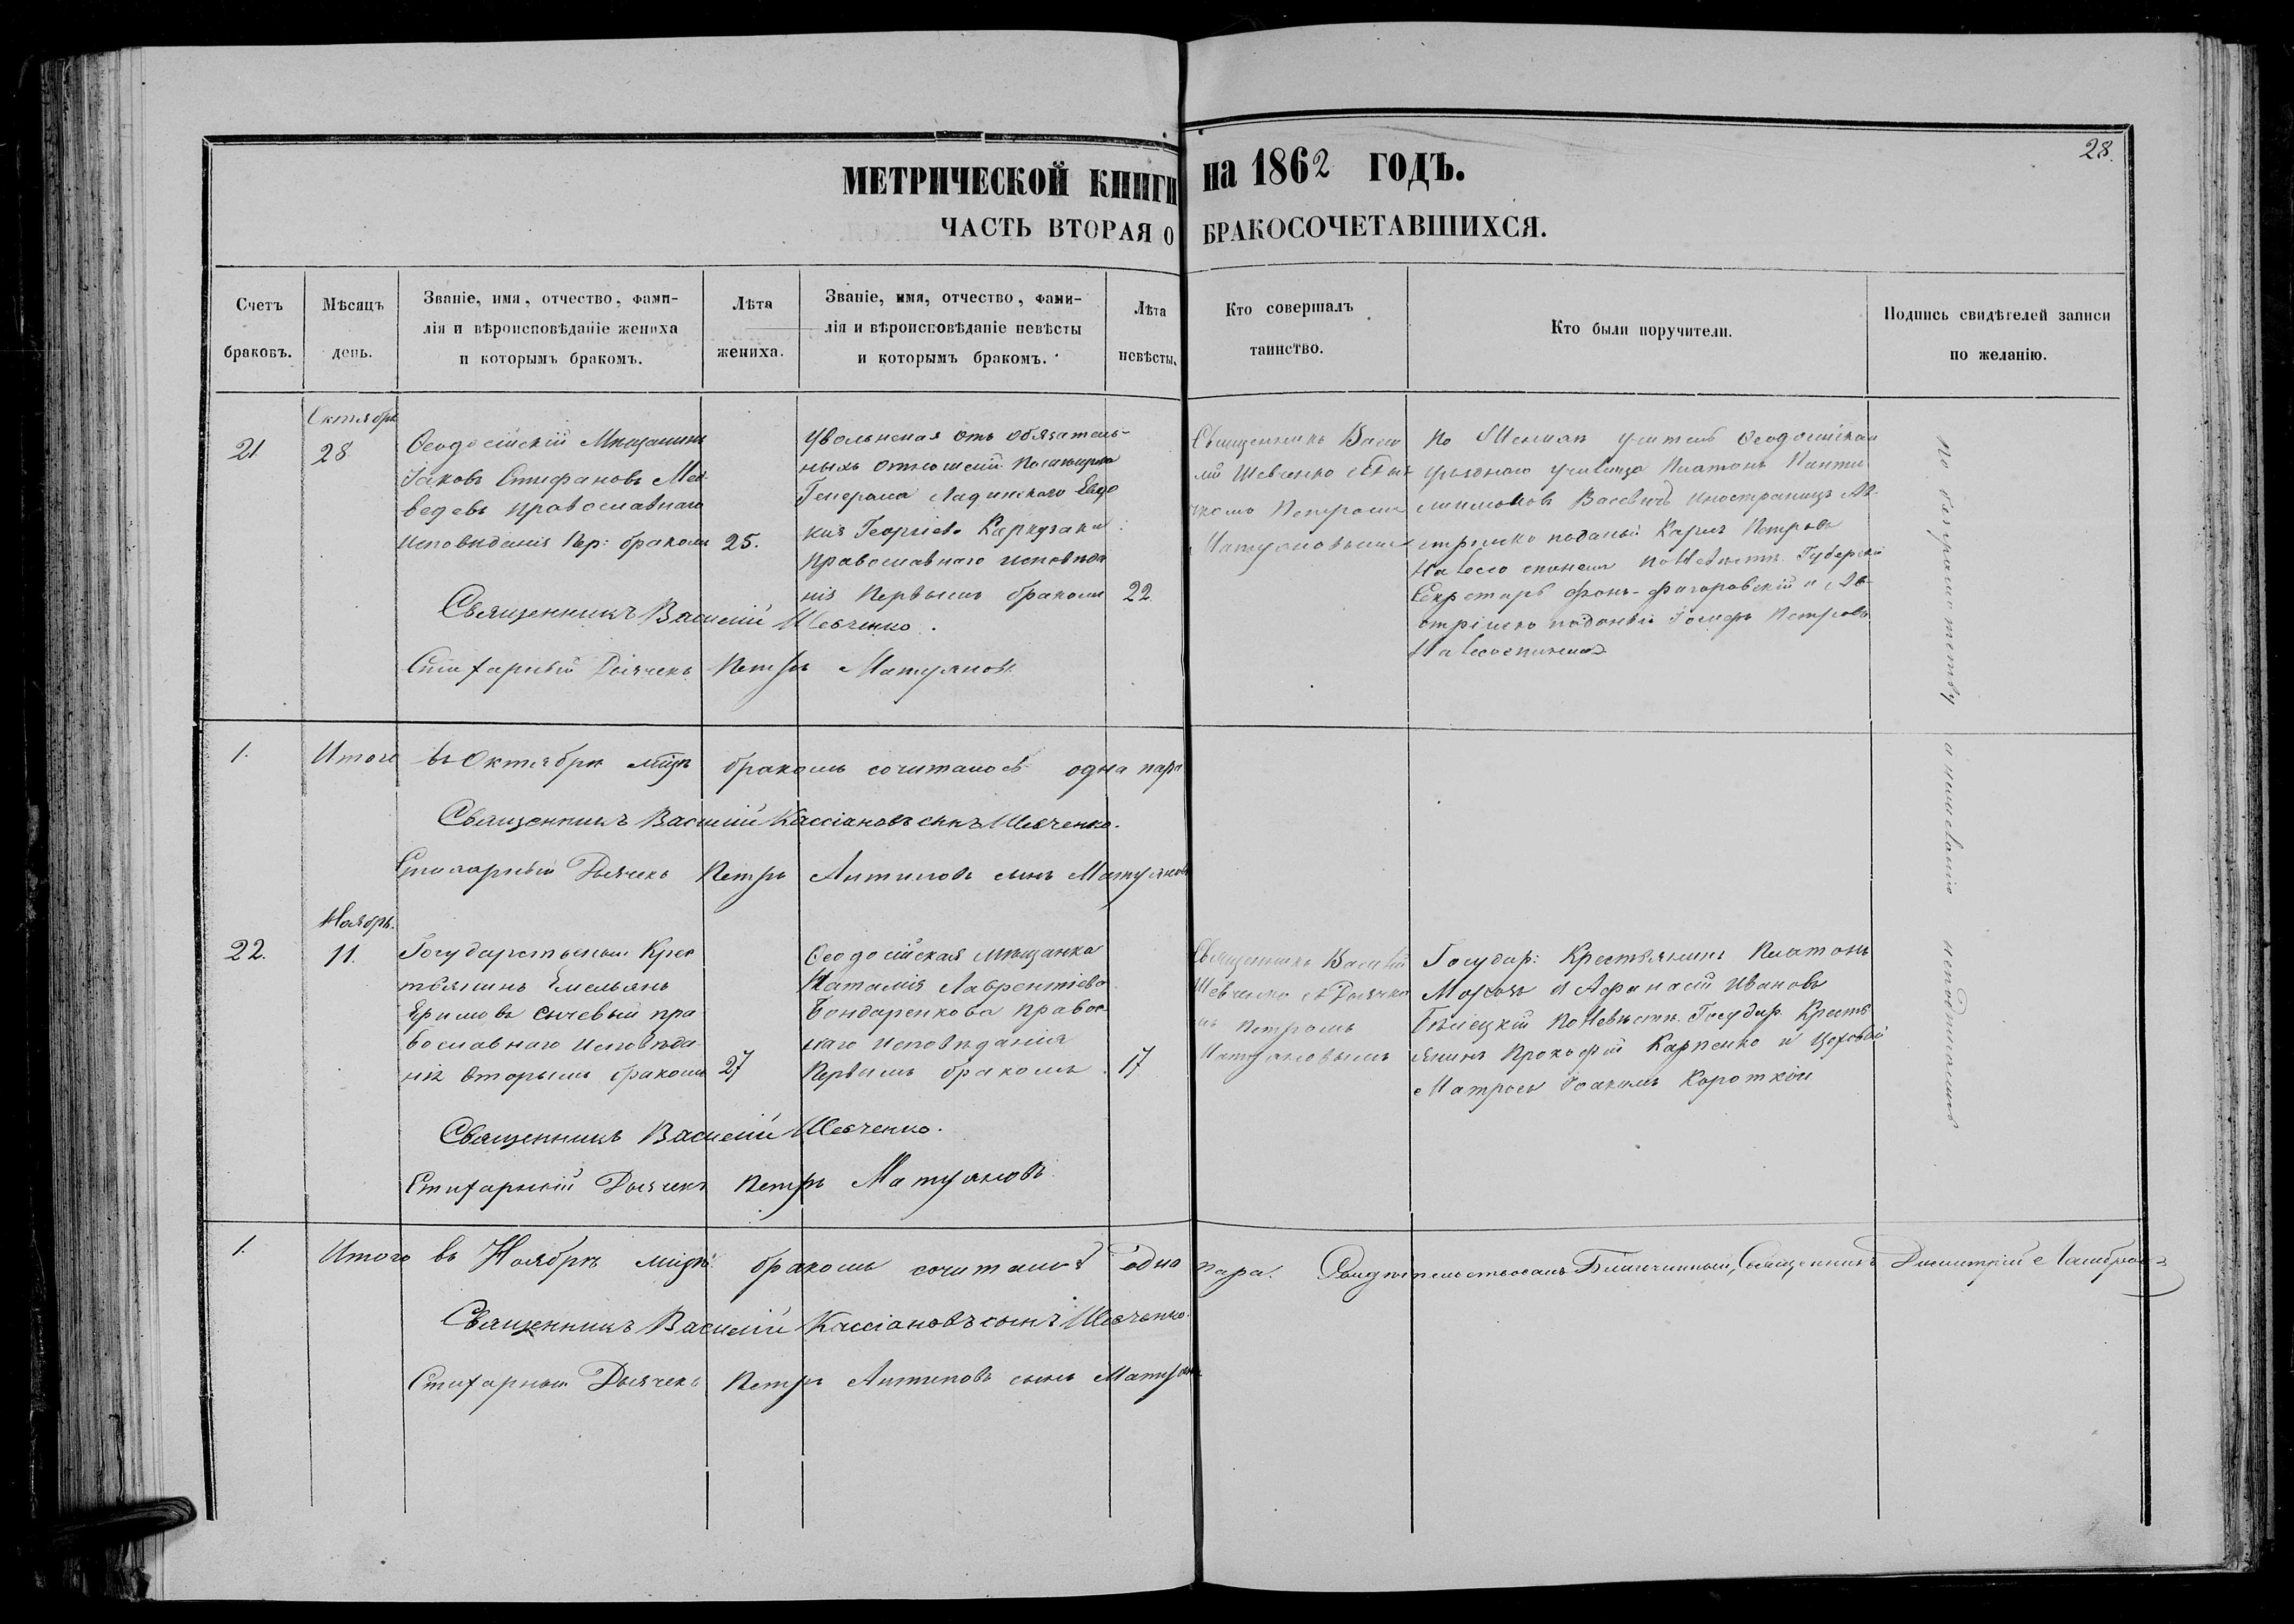 28.
МЕТРИЧЕСКОЙ КНИГИ на 1862 ГОДЪ.
ЧАСТЬ ВТОРАЯ О БРАКОСОЧЕТАВШИХСЯ.
Счетъ
браковъ.
Мѣсяцъ
день.
Званіе, имя, отчество, фами-
лія и вѣроисповѣданіе жениха
и которымъ бракомъ.
Лѣта
жениха.
Званіе, имя, отчество, фами-
лія и вѣроисповѣданіе невѣсты
и которымъ бракомъ.
Лѣта
невѣсты.
Кто совершалъ
таинство.
Кто были поручители.
Подпись свидѣтелей записи
по желанію.
21
Октябрь
28
Ѳеодосійскій Мѣщанинъ
Іаковъ Стефановъ Мед
ведевъ православнаго
исповѣданія пер: бракомъ
25.
Увольненая отъ обязатель-
ныхъ отношеній помѣщика
Генерала Ладинскаго Евдо
кія Георгіева
Православнаго исповѣда
нія Первымъ бракомъ
22
Священникъ Васи
лій Шевченко
Петромъ
Матуяновымъ
По Женихѣ учитель Ѳеодосійскаго
уѣзднаго училища Платонъ Панти
лимоновъ иностранецъ Ав
стрійско поданый Карлъ Петровъ
по Невѣстѣ Губернскій
Секретарь фонъ- и Ав
стрійско поданый Іосифъ Петровъ
Священникъ Василій Шевченко.
Стихарный Дьячекъ Петръ Матуяновъ
1. Итого въ Октябрѣ мѣсяцѣ бракомъ сочиталось одна пара
Священникъ Василій Кассіановъ сынъ Шевченко.
Стихарный Дьячекъ Петръ Антиповъ сынъ Матуяновъ
22.
Ноябрь.
11.
Государственный Крес
тьянинъ Емельянъ
Ефимовъ Сычевый пра
вославнаго исповѣда
нія вторымъ бракомъ
27
Ѳеодосійская мѣщанка
Наталія Лаврентіева
Бондаренкова Правос
лаго исповѣданія
Первымъ бракомъ
17
Священникъ Василій
Шевченко съ Дьячко
мъ Петромъ
Матуяновымъ
Государ: Крестьянинъ Платонъ
и Афанасій Ивановъ
Бѣлецкій по Невѣстѣ Государ. Кресть
янинъ Прокофій Карпенко и Цеховый
Матросъ Іоакимъ Короткій
Священникъ Василій Шевченко.
Стихарный Дьячекъ Петръ Матуяновъ
по безграмотству и неимѣнію неподписались
1. Итого въ Ноябрѣ мѣсяцѣ бракомъ сочиталось одна пара. Свидѣтельствовалъ Благочинный, Священникъ Димитрій
Священникъ Василій Кассіановъ сынъ Шевченко.
Стихарный Дьячекъ Петръ Антиповъ сынъ Матуяновъ